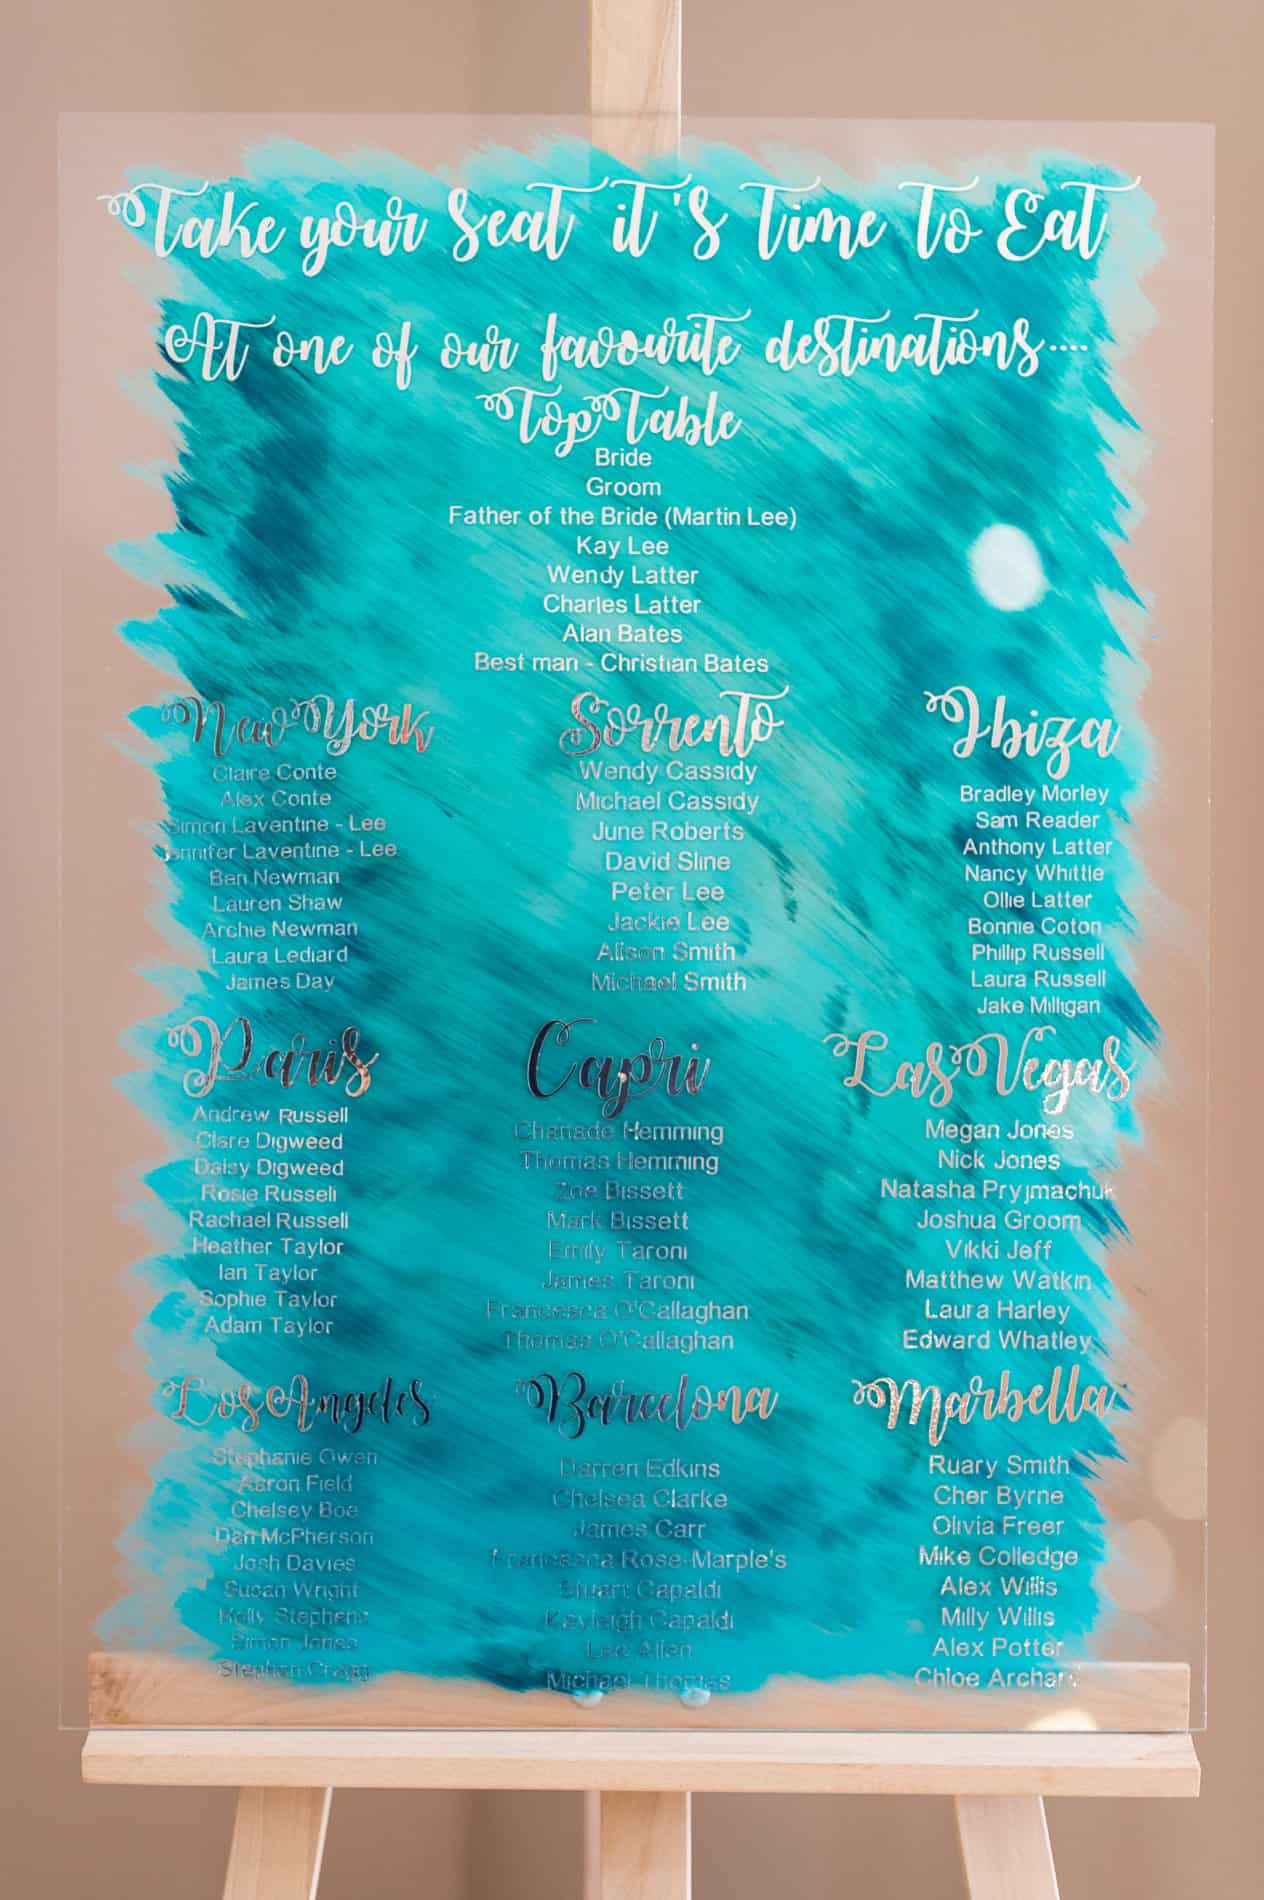 Take your Seat it's Time To Eat
At one of our favourite destinations....
Top Table
Bride
Groom
Father of the Bride (Martin Lee)
Kay Lee
Wendy Latter
Charles Latter
Alan Bates
Best man - Christian Bates
New York
Claire Conte
Alex Conte
Simon Laventine - Lee
Jennifer Laventine - Lee
Ben Newman
Lauren Shaw
Archie Newman
Laura Lediard
James Day
Sorrento
Wendy Cassidy
Michael Cassidy
June Roberts
David Sline
Peter Lee
Jackie Lee
Alison Smith
Michael Smith
Ibiza
Bradley Morley
Sam Reader
Anthony Latter
Nancy Whittle
Ollie Latter
Bonnie Coton
Phillip Russell
Laura Russell
Jake Milligan
Paris
Andrew Russell
Clare Digweed
Daisy Digweed
Rosie Russell
Rachael Russell
Heather Taylor
Ian Taylor
Sophie Taylor
Adam Taylor
Capri
Chanade Hemming
Thomas Hemming
Zoe Bissett
Mark Bissett
Emily Taroni
James Taroni
Francesca O'Callaghan
Thomas O'Callaghan
Las Vegas
Megan Jones
Nick Jones
Natasha Pryjmachuk
Joshua Groom
Vikki Jeff
Matthew Watkin
Laura Harley
Edward Whatley
Los Angeles
Stephanie Owen
Aaron Field
Chelsey Boe
Dan McPherson
Josh Davies
Susan Wright
Holly Stephens
Simon Jones
Stephen Cragg
Barcelona
Darren Edkins
Chelsea Clarke
James Carr
Francesca Rose-Marple's
Stuart Capaldi
Kayleigh Capaldi
Lee Allen
Michael Thomas
Marbella
Ruary Smith
Cher Byrne
Olivia Freer
Mike Colledge
Alex Willis
Milly Willis
Alex Potter
Chloe